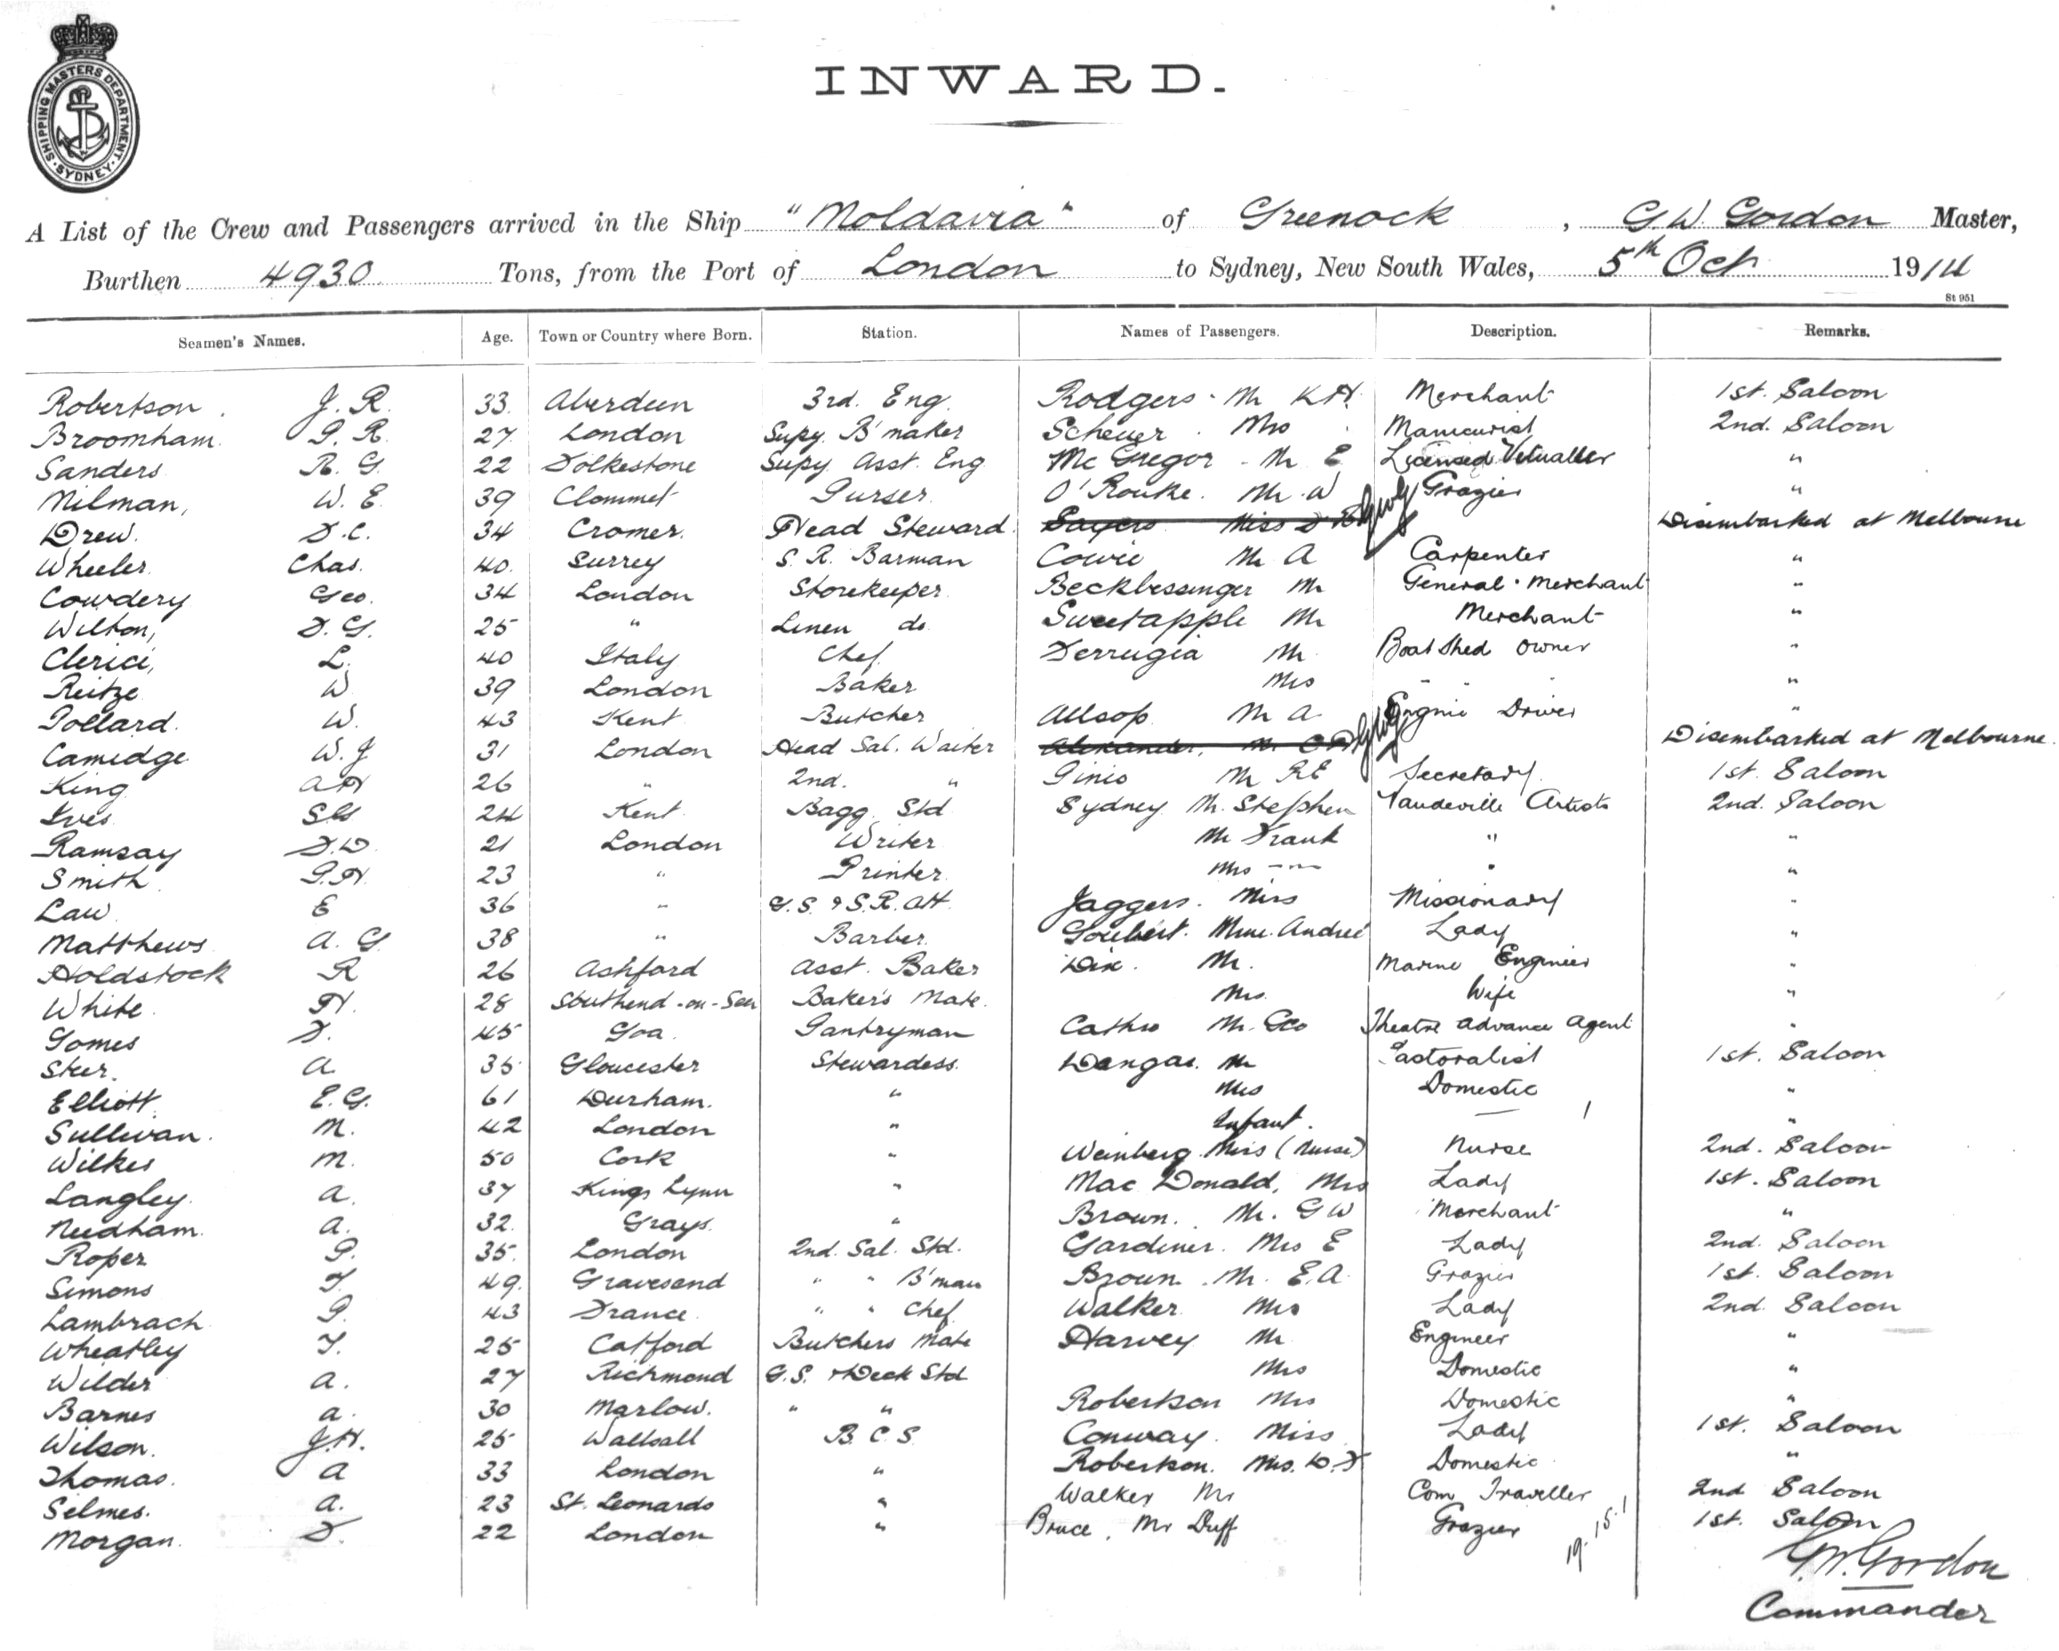 SHIPPING MASTERS DEPARTMENT
SYDNEY
INWARD.
A List of the Crew and Passengers arrived in the Ship "Moldavia" of Greenock, G.W. Gordon Master,
Burthen 4930 Tons, from the Port of London to Sydney, New South Wales, 5th Oct 1914
St 951
Seamen's Names. Age. Town or Country where Born. Station. Names of Passengers. Description. Remarks.
Robertson J. R. 33 Aberdeen 3rd. Eng. Rodgers Mr K H. Merchant 1st. Saloon
Broomham P. R. 27 London Supy. B'maker Scheuer Mrs Manicurist 2nd. Saloon
Sanders R. G. 22 Folkestone Supy. Asst. Eng Mc Gregor Mr E Licensed Vitualler "
Milman, W. E. 39 Clonmel Purser O'Rouke. Mr. W Grazier "
Drew. F.C. 34 Cromer. Head Steward Sayers Miss Disembarked at Melbourne
Wheeler Chas. 40 Surrey S. R. Barman Cowie Mr A Carpenter "
Cowdery Geo. 34 London Storekeeper Beckbessinger Mr General Merchant "
Wilton, F. G. 25 " Linen do Sweetapple Mr Merchant "
Clerici, L. 40 Italy Chef Ferrugia Mr Boat Shed Owner "
Reitze W 39 London Baker Mrs " " "
Pollard. W. 43 Kent Butcher Allsop Mr A Engine Driver "
Camidge W. J 31 London Head Sal. Waiter Alexander, Mr Disembarked at Melbourne.
King A H 26 " 2nd. " Pinio Mr R E Secretary. 1st. Saloon
Ives S G 24 Kent Bagg. Std Sydney Mr. Stephen Vaudeville Artists 2nd. Saloon
Ramsay F. D 21 London Writer Mr Frank " "
Smith P. H. 23 " Printer Mrs " " "
Law E 36 " G. S. & S. R. Att. Jaggers. Miss Missionary "
Matthews A. G 38 " Barber Joubert. Mme. Andreé Lady "
Holdstock R 26 Ashford Asst. Baker Dix. Mr. Marine Engineer "
White H. 28 Southend-on-Sea Baker's Mate. Mrs. Wife "
Gomes F. 45 Goa Pantryman Cathro Mr. Geo Theatre Advance Agent "
Steer. A. 35 Gloucester Stewardess Dangar. Mr Pastoralist 1st. Saloon
Elliott. E. G. 61 Durham. " Mrs Domestic "
Sullivan. M. 42 London " Infant. — "
Wilkes M. 50 Cork " Weinberg Miss (Nurse) Nurse 2nd. Saloon
Langley. A. 37 Kings Lynn " Mac Donald, Mrs Lady 1st. Saloon
Needham. A. 32 Grays. " Brown. Mr. G W Merchant "
Roper P. 35 London 2nd. Sal. Std. Gardiner. Mrs E Lady 2nd. Saloon
Simons T. 49 Gravesend " " B'man Brown. Mr. E. A. Grazier 1st. Saloon
Lambrach P. 43 France " " Chef Walker Mrs Lady 2nd. Saloon
Wheatley T. 25 Catford Butchers Mate Harvey Mr Engineer "
Wilder A. 27 Richmond G. S. & Deck Std Mrs Domestic "
Barnes A. 30 Marlow. " " Robertson Mrs Domestic "
Wilson. J. H. 25 Wallsall B. C. S. Conway. Miss Lady 1st. Saloon
Thomas. A 33 London " Robertson. Mrs. W. F Domestic "
Selmes. A. 23 St. Leonards " Walker Mr Com Traveller 2nd Saloon
Morgan. F. 22 London " Bruce. Mr Duff Grazier 1st. Saloon
19. 15. 1
G. W. Gordon
Commander